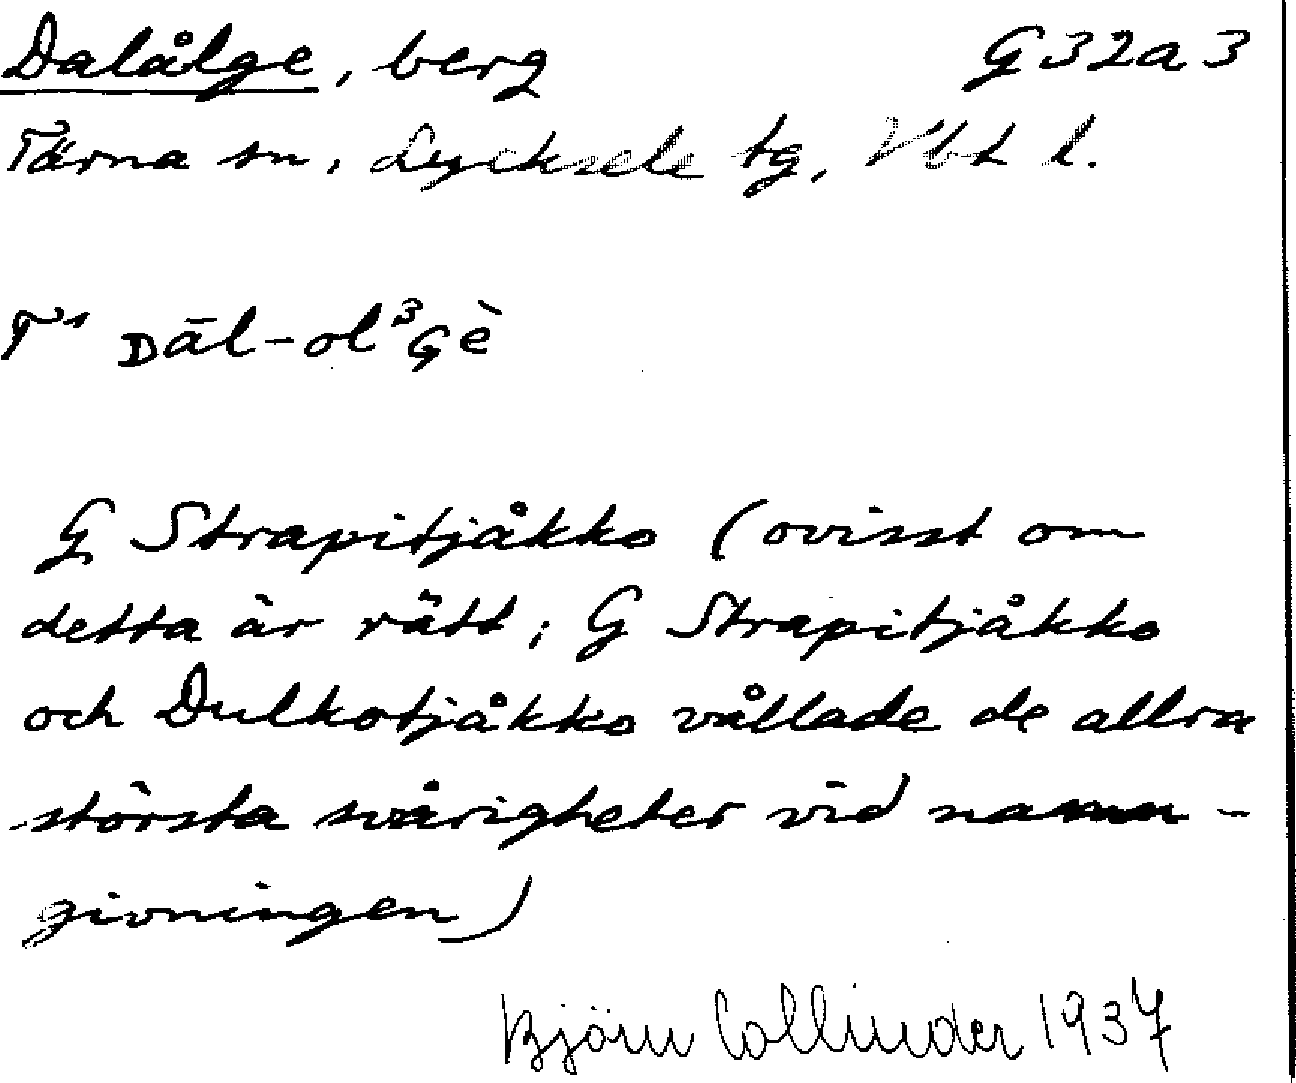 Dalålge, berg G32a3
Tärna sn, Lycksele tg, Vbt l.
T¹ ᴅāl-ol³ɢè
G Strapitjåkko (ovisst om
detta är rätt; G Strapitjåkko
och Dulkotjåkko vållade de allra
största svårigheter vid namn-
givningen)
Björn Collinder 1937